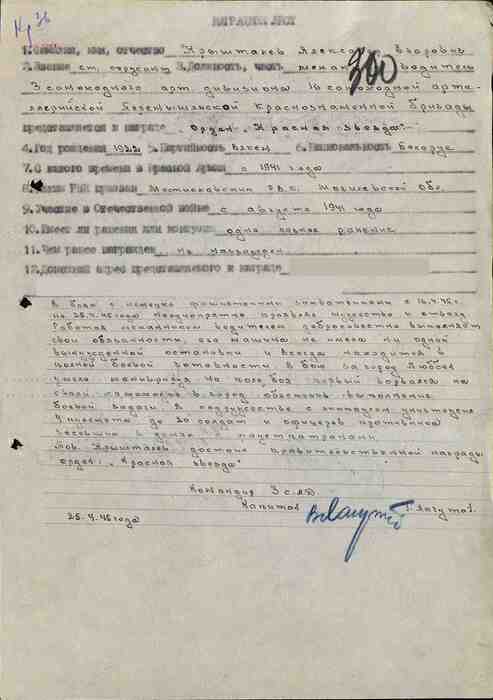 НАГРАДНОЙ ЛИСТ
1. Фамилия, имя, отчество Крыштален Александр Егорович
2. Звание ст. сержант 3. Должность, часть механик водитель
300
3 самоходного арт. дивизиона 16 самоходной арти-
ллерийской Перемышльской Краснознаменной бригады
представляется к награде Орден „Красная звезда“
4. Год рождения 1922 5. Партийность 6. Национальность Белорус
7. С какого времени в Красной Армии с 1941 года
8. Каким РВК призван Мстиславским РВК Могилевской обл.
9. Участие в Отечественной войне с августа 1941 года
10. Имеет ли ранения или контузии одно легкое ранение
11. Чем ранее награжден не награжден
12. Домашний адрес представляемого к награде
В боях с немецко фашистскими захватчиками с 16.4.45г.
по 25.4.45 года неоднократно проявлял мужество и отвагу
Работая механиком водителем добросовестно выполняет
свои обязанности, его машина не имела ни одной
вынужденной остановки и всегда находится в
полной боевой готовности. В бою за город
умело маневрируя на поле боя первый ворвался на
своей самоходке в город обеспечив выполнение
боевой задачи. В содружестве с экипажем уничтожено
пулемета до 20 солдат и офицеров противника
засевших в домах с фаустпатронами.
Тов. Крыштален достоин правительственной награды
орден „Красная звезда“
Командир 3 САД
Капитан Лагутов
25.4.45 года